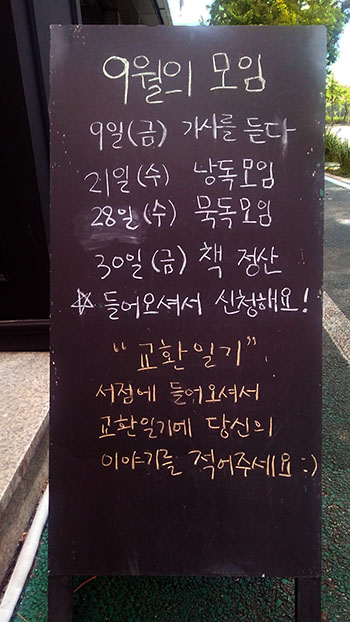 9월의 모임
9일(금) 가사를 듣다
21일(수) 낭독모임
28일(수) 묵독모임
30일(금) 책 정산
☆ 들어오셔서 신청해요!
"교환일기"
서점에 들어오셔서
교환일기에 당신의
이야기를 적어주세요 :)